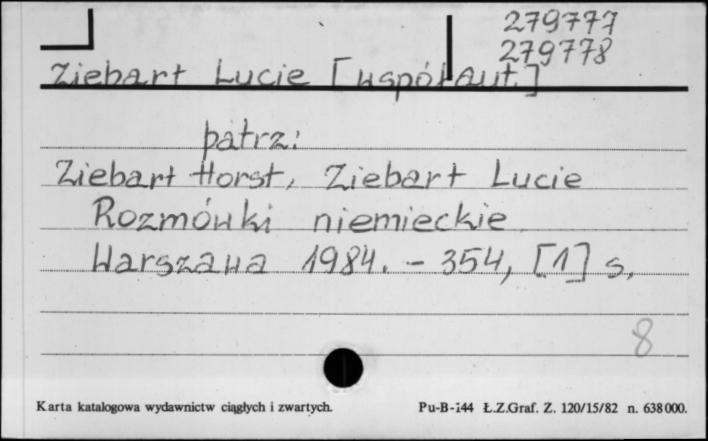 279777
279778
Ziebart Lucie [współaut.]
patrz:
Ziebart Horst, Ziebart Lucie
Rozmówki niemieckie
Warszawa 1984. - 354, [1] s.
8
Karta katalogowa wydawnictw ciągłych i zwartych. Pu-B-144 Ł.Z.Graf. Z. 120/15/82 n. 638000.